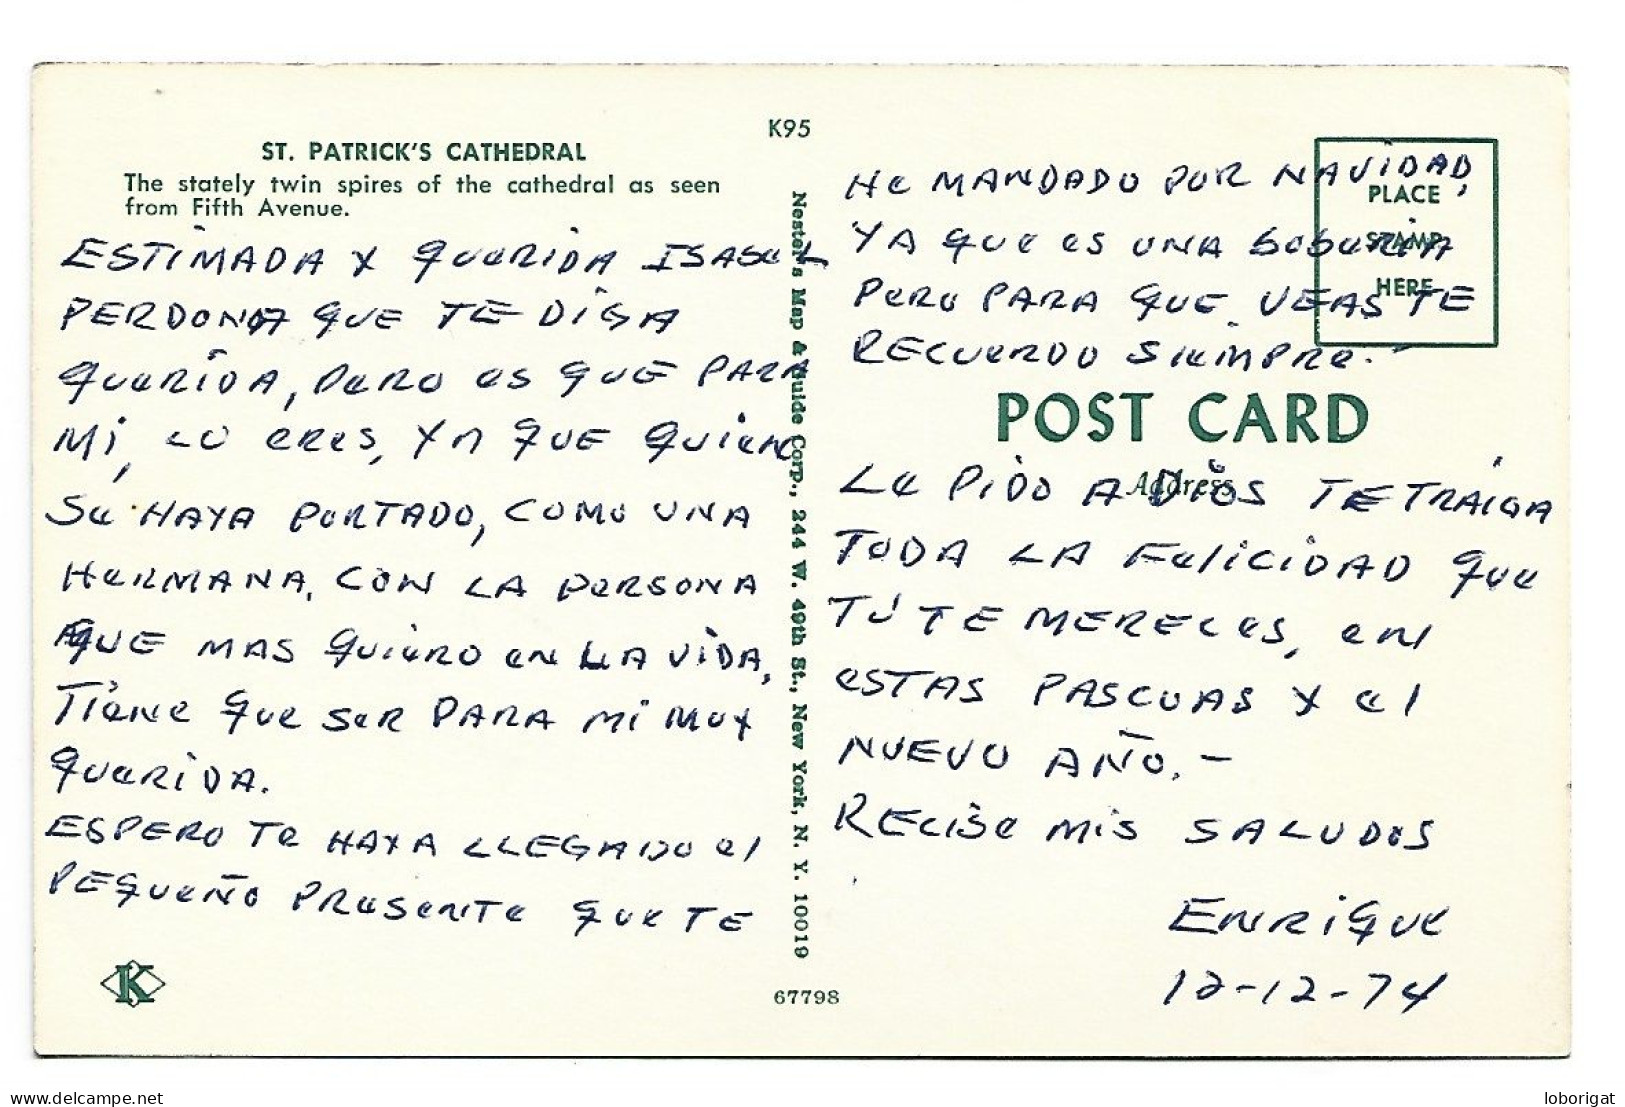 K95
ST. PATRICK'S CATHEDRAL
The stately twin spires of the cathedral as seen
from Fifth Avenue.
ESTIMADA Y QUERIDA ISABEL
PERDONA QUE TE DIGA
QUERIDA, PERO ES QUE PARA
MI, LO ERES, YA QUE QUIEN
SE HAYA PORTADO, COMO UNA
HERMANA, CON LA PERSONA
QUE MAS QUIERO EN LA VIDA,
TIENE QUE SER PARA MI MUY
QUERIDA.
ESPERO TE HAYA LLEGADO el
PEQUEÑO PRESENTE QUE TE
K
Nester's Map & Guide Corp., 244 W. 49th St., New York, N. Y. 10019
67798
PLACE
STAMP
HERE
HE MANDADO POR NAVIDAD,
YA QUE ES UNA BOBERIA
PERO PARA QUE VEAS TE
RECUERDO SIEMPRE.-
POST CARD
Address
LE PIDO A DIOS TE TRAIGA
TODA LA FelICIDAD QUE
TÚ TE MERECES, EN
ESTAS PASCUAS Y el
NUEVO AÑO.-
RECIBE MIS SALUDOS
ENRIQUE
12-12-74
todocoleccion.net
loborigat